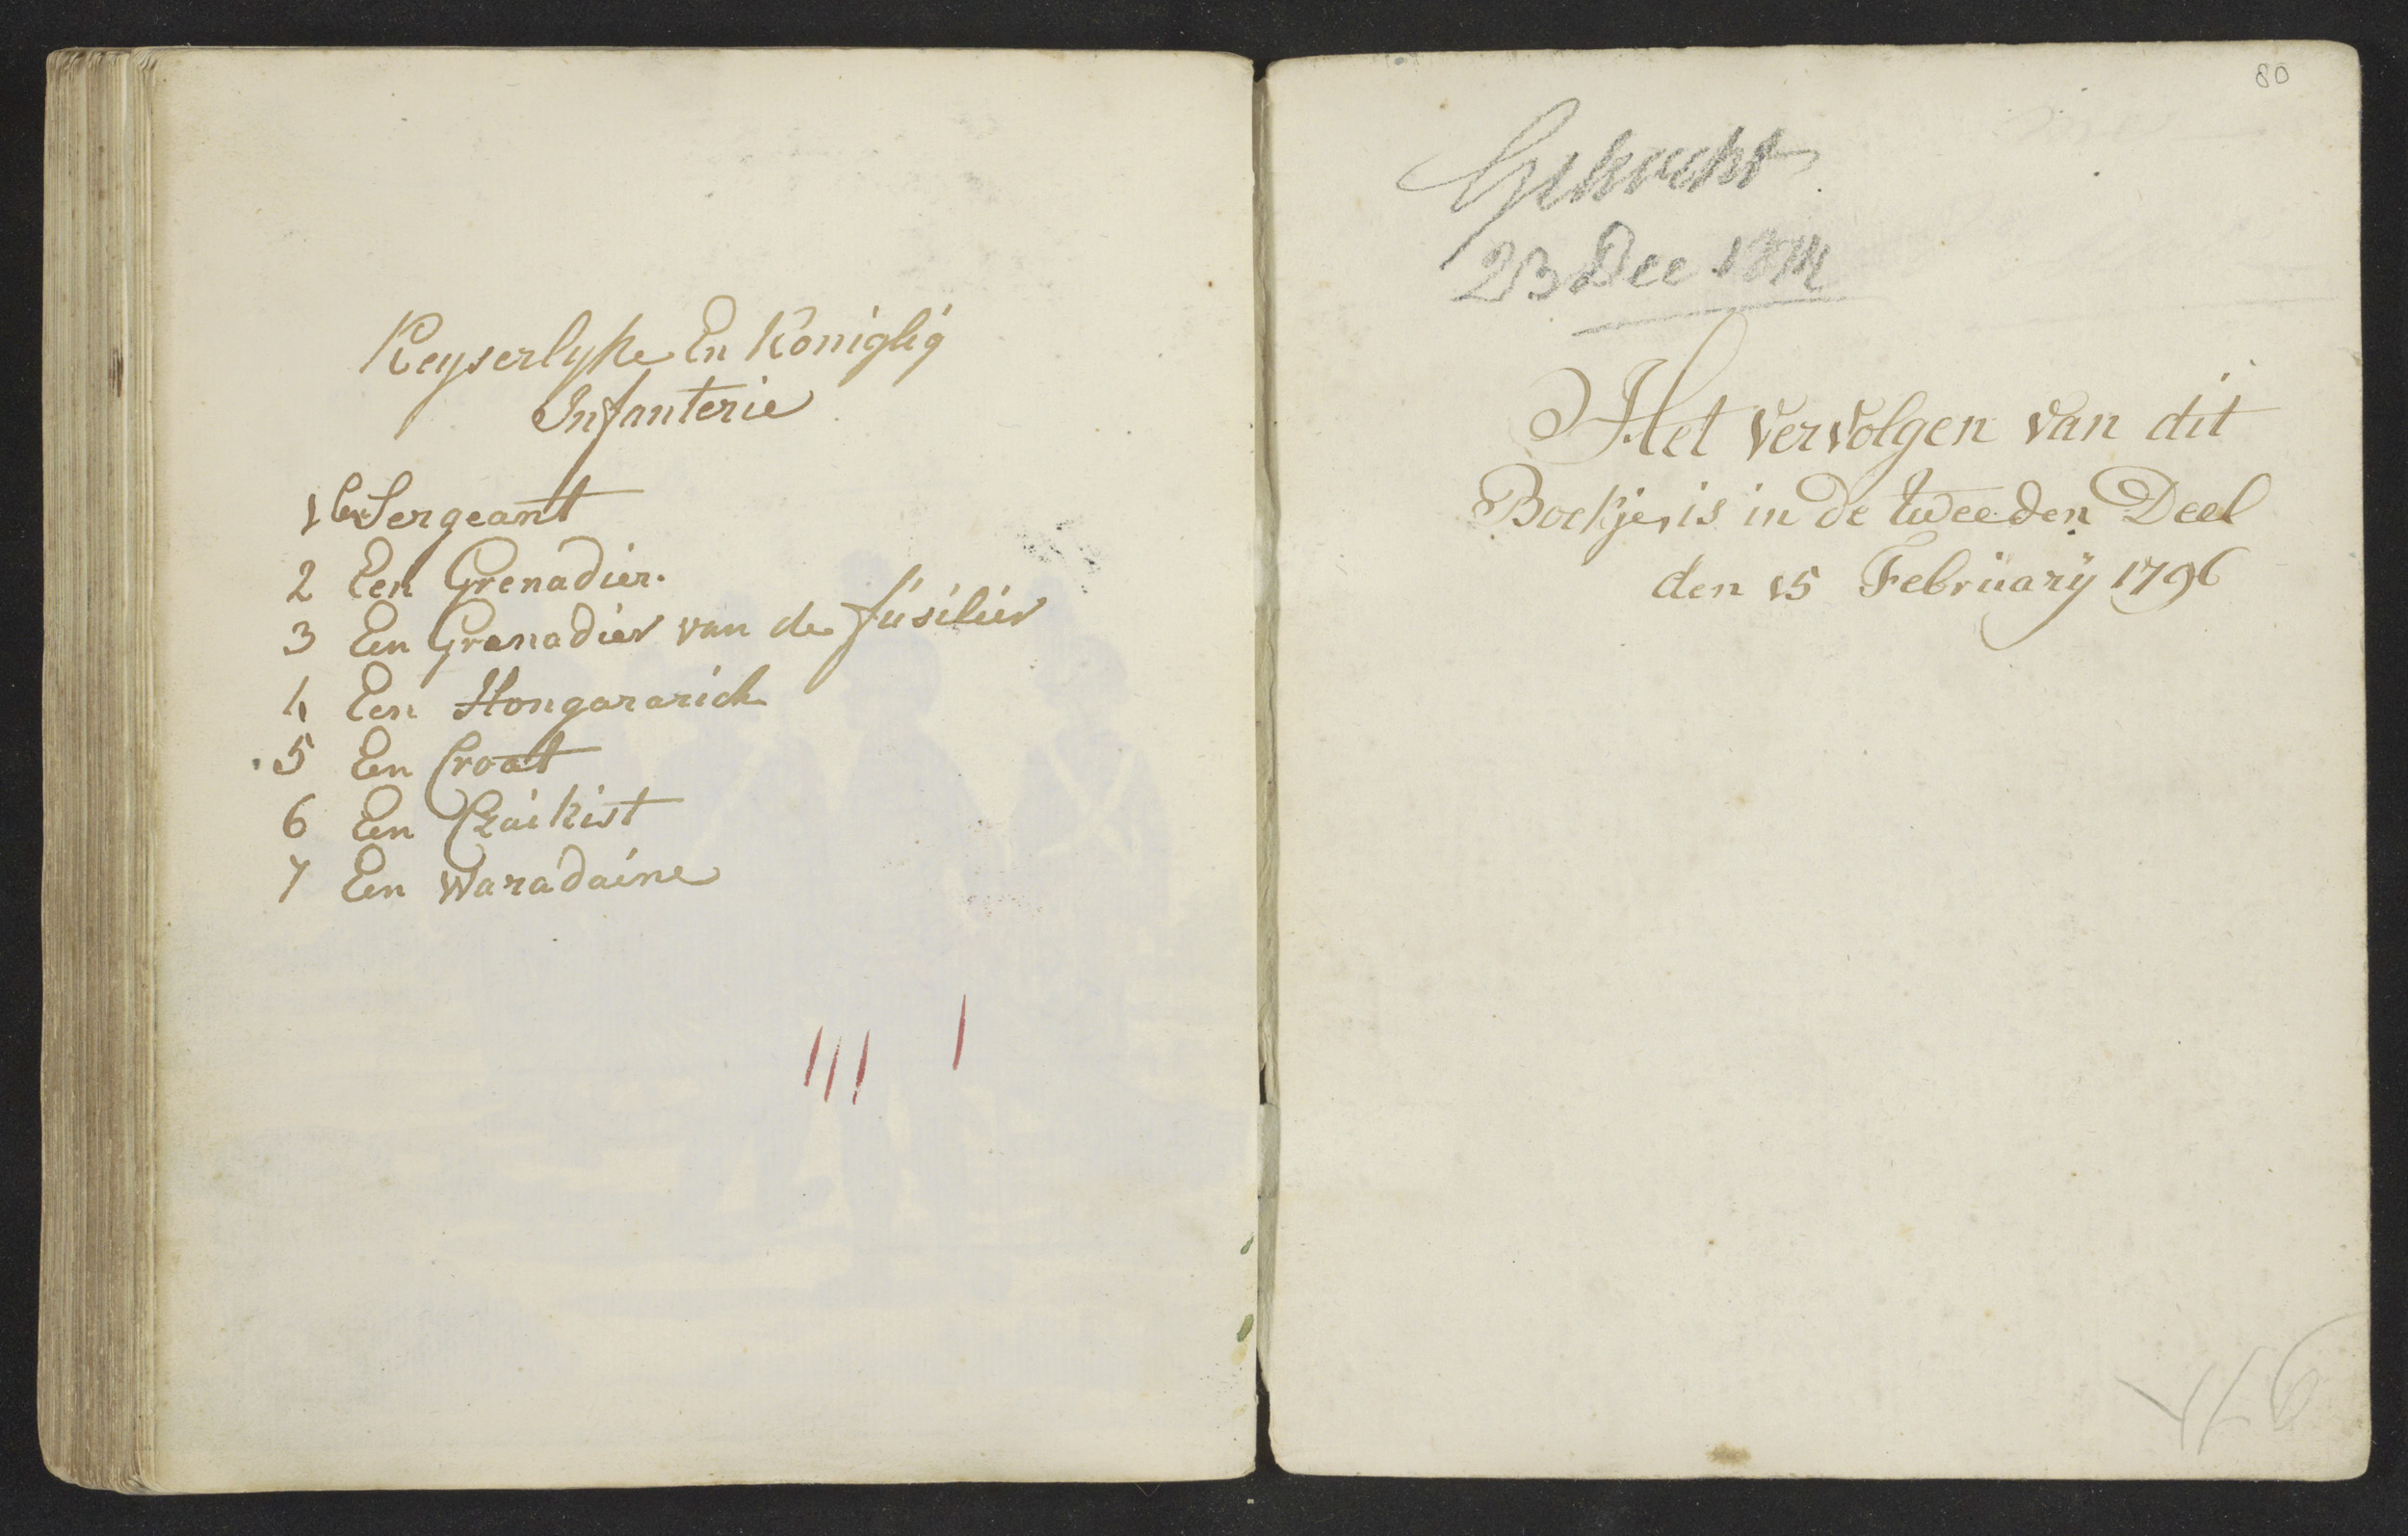 Keyserlyke En Königlig
Infanterie
1 Een Sergeant
2 Een Grenadier.
3 Een Grenadier van de füsilier
4 Een Hongararich
5 Een Croat
6 Een Czaikist
7 Een Waradaine
80
23 Dec
Het Vervolgen van dit
Boekje, is in de tweeden Deel
den 15 Februarÿ 1796